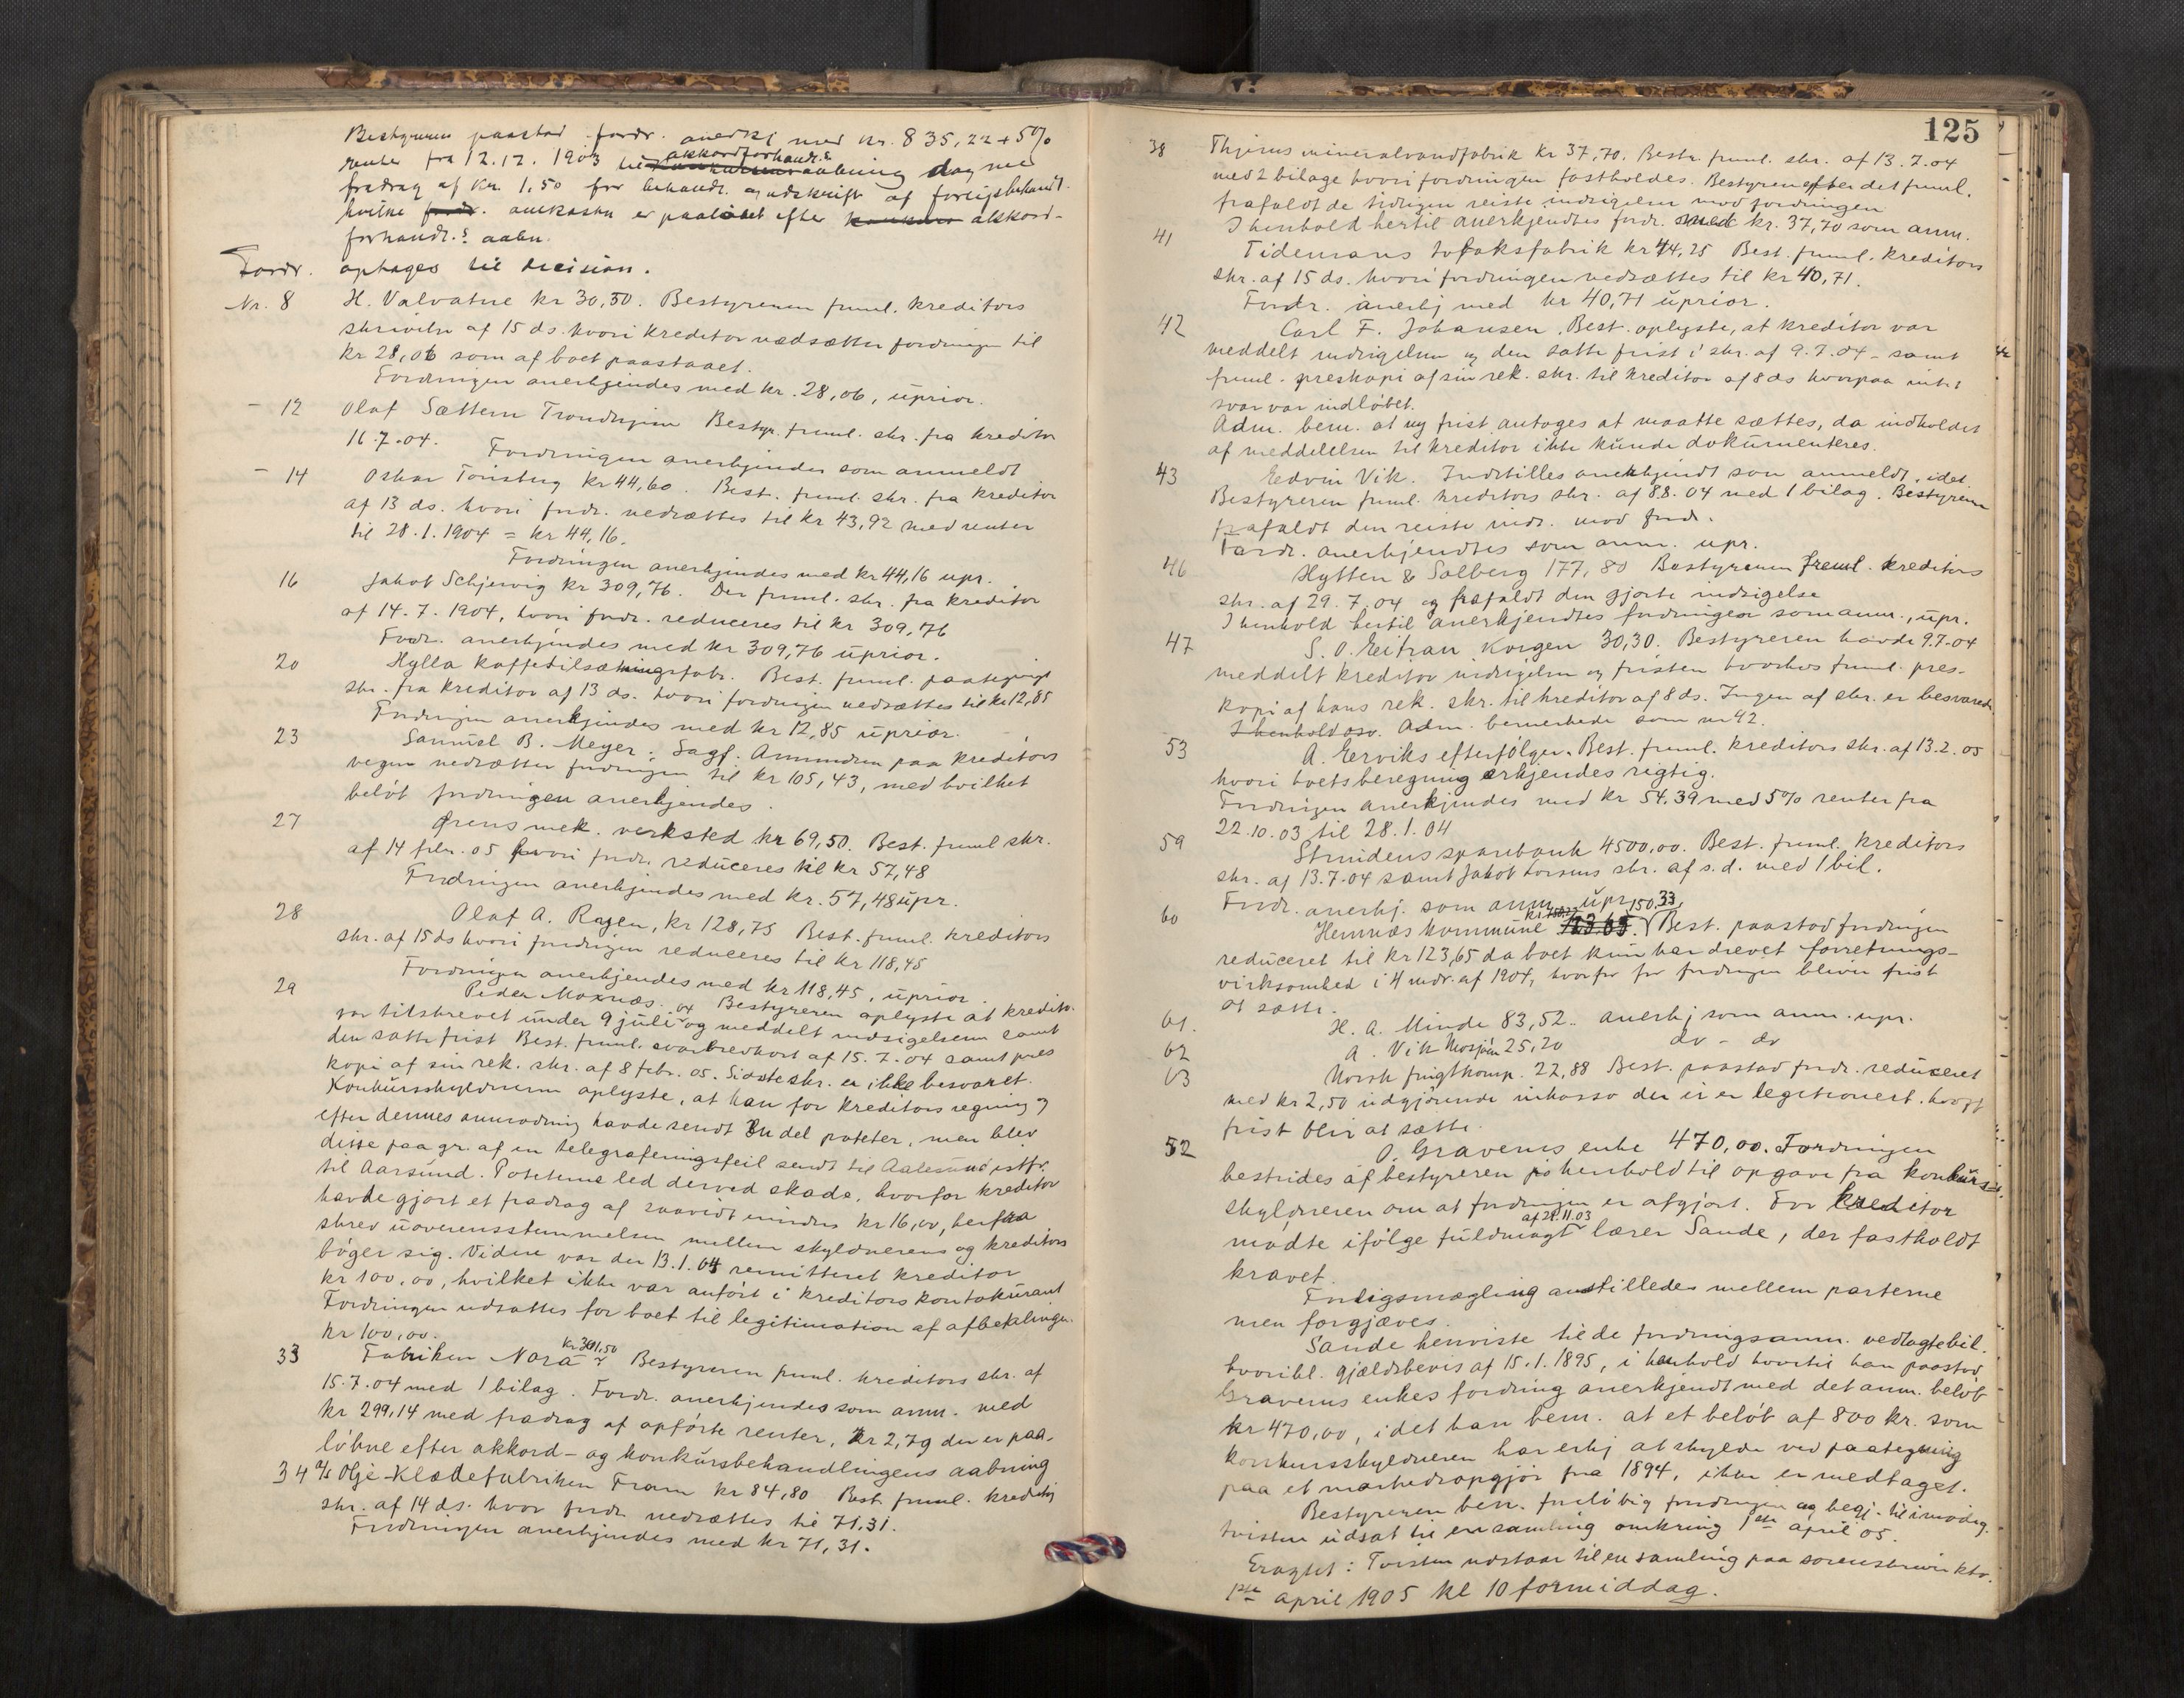 Bestyreren paastod fordr. anerkj med kr. 835,22 + 5%
renter fra 12.12.1903 til akkordforhandl.s aabning dag med
fradrag af kr. 1,50 for behandl. og udskrift af forligsbehandl.
hvilke fordr. omkostn er paaløbet efter konkurs akkord-
forhandl.s aabn.
Fordr. optages til decision.
Nr. 8 H. Valvatne kr 30,50. Bestyreren freml. kreditors
skrivelse af 15 ds. hvori kreditor nedsætter fordringen til
kr 28,06 som af boet paastaaet.
Fordringen anerkjendes med kr. 28,06, uprior.
- 12 Olaf Sættem Trondhjem Bestyr. freml. skr. fra kreditor
16.7.04. Fordringen anerkjendes som anmeldt
- 14 Oskar Tønsberg kr 44,60. Best. freml. skr. fra kreditor
af 13 ds. hvori fordr. nedsættes til kr 43,92 med renter
til 28.1.1904 = kr 44,16.
Fordringen anerkjendes med kr 44,16 upr.
16 Jakob Schjervig kr 309,76. Der freml. skr. fra kreditor
af 14.7.1904, hvori fordr. reduceres til kr 309,76
Fordr. anerkjendes med kr 309,76 uprior.
20 Hylla kaffetilsætningsfabr. Best. freml. paategnet
skr. fra kreditor af 13 ds. hvori fordringen nedsættes til kr 12,85
Fordringen anerkjendes med kr 12,85 uprior.
23 Samuel B. Meyer; Sagf. Amundsen paa kreditors
vegne nedsætter fordringen til kr 105,43, med hvilket
beløb fordringen anerkjendes.
27 Grens mek. verksted kr 69,50. Best. freml skr.
af 14 febr. 05 hvori fordr. reduceres til kr 57,48
Fordringen anerkjendes med kr. 57,48 upr.
28 Olaf A. Ragen, kr 128,75 Best. freml. kreditors
skr. af 15 ds hvori fordringen reduceres til kr 118,45
Fordringen anerkjendes med kr 118,45, uprior.
29 Peder Moxnæs. Bestyreren oplyste at kreditor
var tilskrevet under 9 juli 04 og meddelt indsigelsen samt
den satte frist Best. freml. svarbrevkort af 15.7.04 samt pres
kopi af sin rek. skr. af 8 febr. 05. Sidste skr. er ikke besvaret.
Konkursskyldneren oplyste, at han for kreditors regning og
efter dennes anmodning havde sendt en del poteter, men blev
disse paa gr. af en telegraferingsfeil sendt til Aalesund istf.
til Aarsund. Poteterne led derved skade, hvorfor kreditor
havde gjort et fradrag af saavidt mindes kr 16,00, herfra
skrev uoverensstemmelsen mellem skyldnerens og kreditors
bøger sig. Videre var der 13.1.04 remitteret kreditor
kr 100,00, hvilket ikke var anført i kreditors kontokurant
Fordringen udsattes for boet til legitimation af afbetalingen
kr 100,00.
33 Fabriken Nora kr 301,50 Bestyreren freml. kreditors skr. af
15.7.04 med 1 bilag. Fordr. anerkjendes som anm. med
kr 299,14 med fradrag af opførte renter, kr 2,79 der er paa-
løbne efter akkord- og konkursbehandlingens aabning
34 A/S Olje-Klædefabriken Fram kr 84,80 Best. freml. kreditors
skr. af 14 ds. hvor fordr. nedsættes til 71,31.
Fordringen anerkjendes med kr 71,31.
125
38 Thjerus mineralvandfabrik kr 37,70. Bestr. freml. skr. af 13.7.04
med 2 bilage hvori fordringen fastholdes. Bestyreren efter det freml.
frafaldt de tidligere reiste indsigelser mod fordringen
I henhold hertil anerkjendtes fordr. med kr. 37,70 som anm.
41 Tidemans tobaksfabrik kr 44,25 Best. freml. kreditors
skr. af 15 ds. hvori fordringen nedsættes til kr 40,71.
Fordr. anerkj med kr 40,71 uprior.
42 Carl F. Johansen. Best. oplyste, at kreditor var
meddelt indsigelsen og den satte frist i skr. af 9.7.04 - samt
freml. preskopi af sin rek. skr. til kreditor af 8 ds hvorpaa intet
svar var indløbet.
Adm. bem. at ny frist antages at maatte sættes, da indholdet
af meddelelsen til kreditor ikke kunde dokumenteres.
43 Edvin Vik. Indstilles anerkjendt som anmeldt, idet
Bestyreren freml. kreditors skr. af 8.8.04 med 1 bilag. Bestyreren
frafaldt den reiste inds. mod fordr.
Fordr. anerkjendtes som anm. upr.
46 Hytten & Solberg 177,80 Bestyreren freml. kreditors
skr. af 29.7.04 og frafaldt den gjorte indsigelse
I henhold hertil anerkjendtes fordringen som anm., upr.
47 S. O. Leitran Korgen 30,30. Bestyreren havde 9.7.04
meddelt kreditor indsigelsen og fristen hvorhos freml. pres-
kopi af hans rek. skr. til kreditor af 8 ds. Ingen af skr. er besvaret.
I henhold osv. Adm. bemerkede som nr 42.
53 A. Erviks efterfølger. Best. freml. kreditors skr. af 13.2.05
hvori boets beregning erkjendes rigtig.
Fordringen anerkjendes med kr 54,39 med 5% renter fra
22.10.03 til 28.1.04
59 Strindens sparebank 4500,00. Best. freml. kreditors
skr. af 13.7.04 samt Jakob Lorsens skr. af s.d. med 1 bil.
Fordr. anerkj. som anm. upr.
60 Hemnæs kommune kr 150,33. Best. paastod fordringen
reduceret til kr 123,65 da boet kun har drevet forretnings-
virksomhed i 4 mdr. af 1904, hvorfor for fordringen bliver frist
at sætte.
61. H. A. Minde 83,52. anerkj som anm. upr.
62 A. Vik Mosjøen 25,20 do - do
63 Norsk frugtkomp. 22,88 Best. paastod fordr. reduceret
med kr 2,50 udgjørende inkasso der ei er legitimert. hvorf
frist blir at sætte.
52 O. Gravems enke 470,00. Fordringen
bestrides af bestyreren på henhold til opgave fra konkurs-
skyldneren om at fordringen er afgjort. For kreditor
mødte ifølge fuldmagt af 21.11.03 lærer Sande, der fastholdt
kravet.
Forligsmægling anstilledes mellem parterne
men forgjæves.
Sande henviste til de fordringsanm. vedlagte bil.
hvoribl. gjældsbevis af 15.1.1895, i henhold hvortil han paastod
Gravems enkes fordring anerkjendt med det anm. beløb
kr 470,00, idet han bem. at et beløb af 800 kr. som
konkursskyldneren har erkj at skylde ved paategning
paa et markedsopgjør fra 1894, ikke er medtaget.
Bestyreren ben. foreløbig fordringen og begj. tilimødeg.
tvisten udsat til en samling omkring 1ste april 05.
Eragtet: Tvisten udstaar til en samling paa sorenskriverktr.
1ste april 1905 kl 10 formiddag.